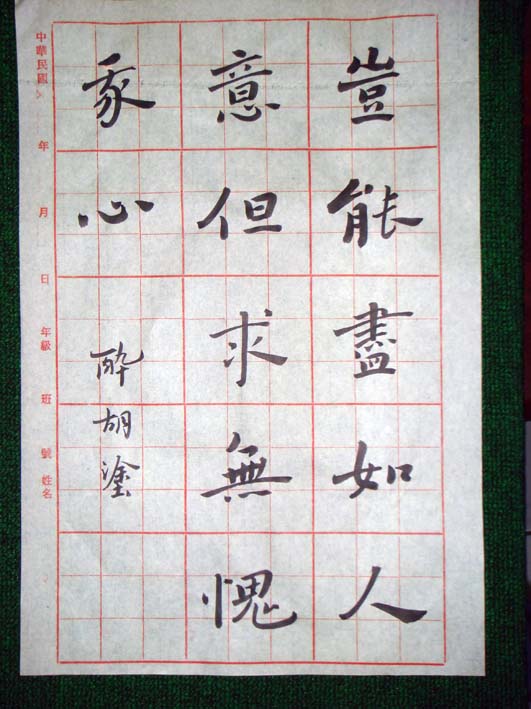 豈能盡如人
意但求無愧
我心
酔胡塗
中華民國 年 月 日 年級 班 號 姓名